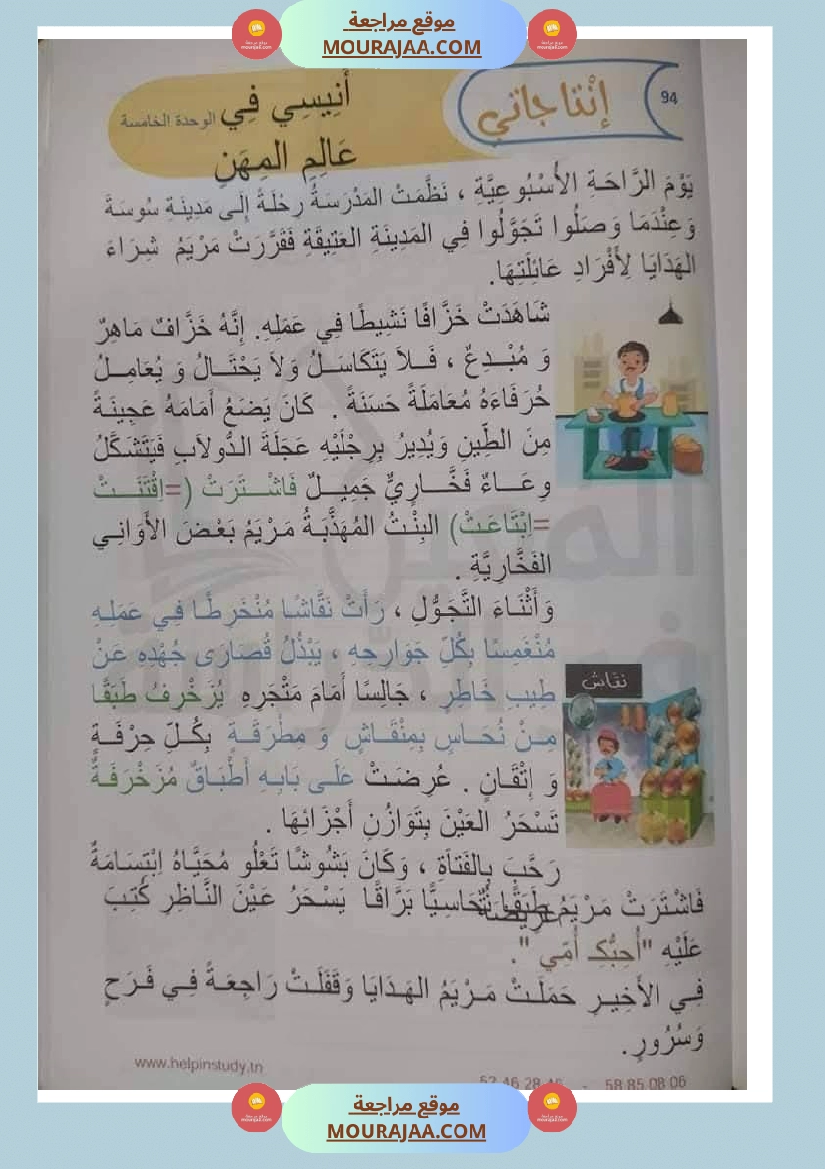 موقع مراجعة
MOURAJAA.COM
94
إنْتاجاتي
أَنِيسِي فِي
الوحدة الخامسة
عَالِمِ المِهَنِ
يَوْمَ الرَّاحَةِ الأُسْبُوعِيَّةِ ، نَظَّمَتْ المَدْرَسَةُ رِحْلَةً إِلَى مَدِينَةِ سُوسَةَ
وَعِنْدَمَا وَصَلُوا تَجَوَّلُوا فِي المَدِينَةِ العَتِيقَةِ فَقَرَّرَتْ مَرْيَمُ شِرَاءَ
الهَدَايَا لِأَفْرَادِ عَائِلَتِهَا.
شَاهَدَتْ خَزَّافًا نَشِيطًا فِي عَمَلِهِ. إِنَّهُ خَزَّافٌ مَاهِرٌ
وَ مُبْدِعٌ ، فَلاَ يَتَكَاسَلُ وَلاَ يَحْتَالُ وَ يُعَامِلُ
حُرَفَاءَهُ مُعَامَلَةً حَسَنَةً . كَانَ يَضَعُ أَمَامَهُ عَجِينَةً
مِنَ الطِّينِ وَيُدِيرُ بِرِجْلَيْهِ عَجَلَةَ الدُّولاَبِ فَيَتَشَكَّلُ
وِعَاءٌ فَخَّارِيٌّ جَمِيلٌ فَاشْتَرَتْ (=اقْتَنَتْ
=اِبْتَاعَتْ) البِنْتُ المُهَذَّبَةُ مَرْيَمُ بَعْضَ الأَوَانِي
الفَخَّارِيَّةِ .
وَ أَثْنَاءَ التَّجَوُّلِ ، رَأَتْ نَقَّاشًا مُنْخَرِطًا فِي عَمَلِهِ
مُنْغَمِسًا بِكُلِّ جَوَارِحِهِ ، يَبْذُلُ قُصَارَى جُهْدِهِ عَنْ
طِيبِ خَاطِرٍ ، جَالِسًا أَمَامَ مَتْجَرِهِ يُزَخْرِفُ طَبَقًا
مِنْ نُحَاسٍ بِمِنْقَاشٍ وَ مِطْرَقَةٍ بِكُلِّ حِرْفَةٍ
وَ إِتْقَانٍ . عُرِضَتْ عَلَى بَابِهِ أَطْبَاقٌ مُزَخْرَفَةٌ
تَسْحَرُ العَيْنَ بِتَوَازُنِ أَجْزَائِهَا .
نقاش
رَحَّبَ بِالفَتَاةِ ، وَكَانَ بَشُوشًا تَعْلُو مُحَيَّاهُ اِبْتِسَامَةٌ
عَرِيضَةٌ
فَاشْتَرَتْ مَرْيَمُ طَبَقًا نُحَاسِيًّا بَرَّاقًا يَسْحَرُ عَيْنَ النَّاظِرِ كُتِبَ
عَلَيْهِ "أُحِبُّكِ أُمِّي ".
فِي الأَخِيرِ حَمَلَتْ مَرْيَمُ الهَدَايَا وَقَفَلَتْ رَاجِعَةً فِي فَرَحٍ
وَسُرُورٍ.
www.helpinstudy.tn
58 85 08 06
موقع مراجعة
MOURAJAA.COM